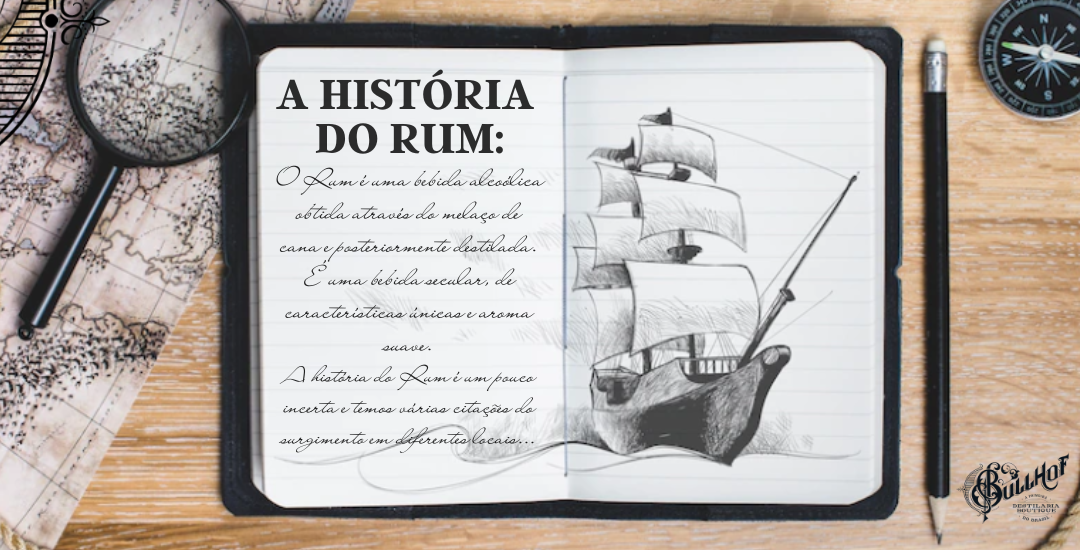 A HISTÓRIA
DO RUM:
O Rum é uma bebida alcoólica
obtida através do melaço de
cana e posteriormente destilada.
É uma bebida secular, de
características únicas e aroma
suave.
A história do Rum é um pouco
incerta e temos várias citações do
surgimento em diferentes locais...
N
W
BULLHOF
A PRIMEIRA
DESTILARIA
BOUTIQUE
DO BRASIL